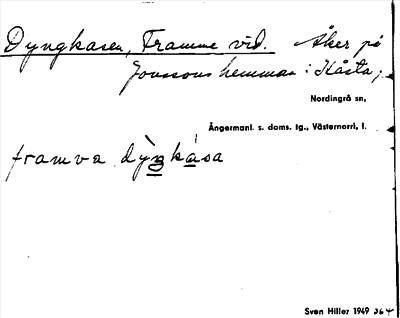 Dyngkasen, Framme vid. Åker på
Jonssons hemman i Kåsta;
Nordingrå sn,
Ångermanl. s. doms. tg., Västernorrl, l.
framva dỳŋkása
Sven Hiller 1949